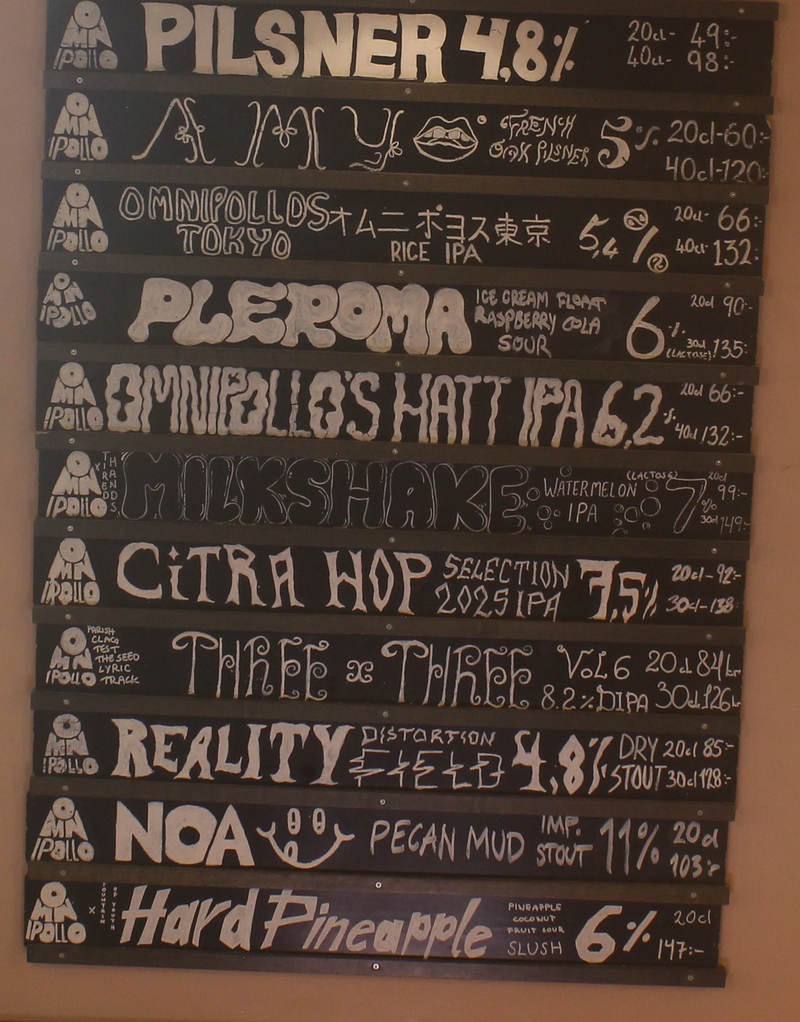 OMNIPOLLO PILSNER 4,8% 20cl- 49:-
40cl- 98:-
OMNIPOLLO AMY FRENCH PILSNER 5% 20cl-60:-
40cl-120:-
OMNIPOLLO OMNIPOLLOS TOKYO オムニポヨス東京 RICE IPA 5,4% 20cl- 66:-
40cl- 132:-
OMNIPOLLO PLEROMA ICE CREAM FLOAT 6% 20cl 90:-
RASPBERRY COLA
SOUR (LACTOSE) 30cl 135:-
OMNIPOLLO OMNIPOLLO'S HATT IPA 6,2% 20cl 66:-
40cl 132:-
OMNIPOLLO MILKSHAKE WATERMELON IPA (LACTOSE) 7% 20cl 99:-
30cl 149:-
OMNIPOLLO CiTRA HOP SELECTION 7,5% 20cl- 92:-
2025 IPA 30cl- 138:-
OMNIPOLLO PARISH
CLAG
TEST
THE SEED
LYRIC
TRACK
THREE x THREE VOL 6 20cl 84kr
8.2% DIPA 30cl 126kr
OMNIPOLLO REALITY DISTORTION FIELD 4,8% DRY STOUT 20cl 85:-
30cl 128:-
OMNIPOLLO NOA PECAN MUD IMP. STOUT 11% 20cl
103:-
OMNIPOLLO x FOUNTAIN OF YOUTH Hard Pineapple PINEAPPLE
COCONUT
FRUIT SOUR
SLUSH 6% 20cl
147:-